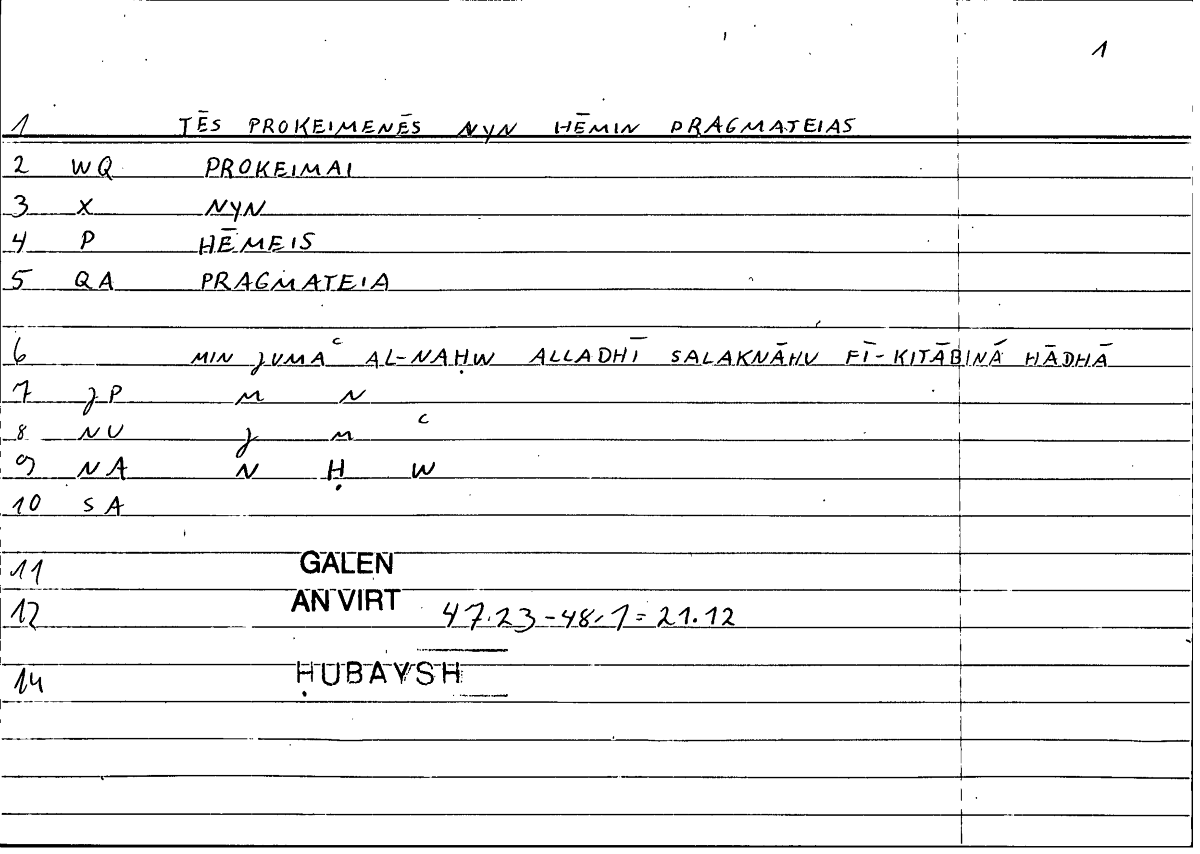 1
1 TĒS PROKEIMENĒS NYN HĒMIN PRAGMATEIAS
2 WQ PROKEIMAI
3 X NYN
4 P HĒMEIS
5 QA PRAGMATEIA
6 MIN JUMAʿ AL-NAḤW ALLADHĪ SALAKNĀHU FĪ-KITĀBINĀ HĀDHĀ
7 JP M N
8 NU J M ʿ
9 NA N Ḥ W
10 SA
11 GALEN
12 AN VIRT 47.23-48.1=21.12
14 ḤUBAYSH